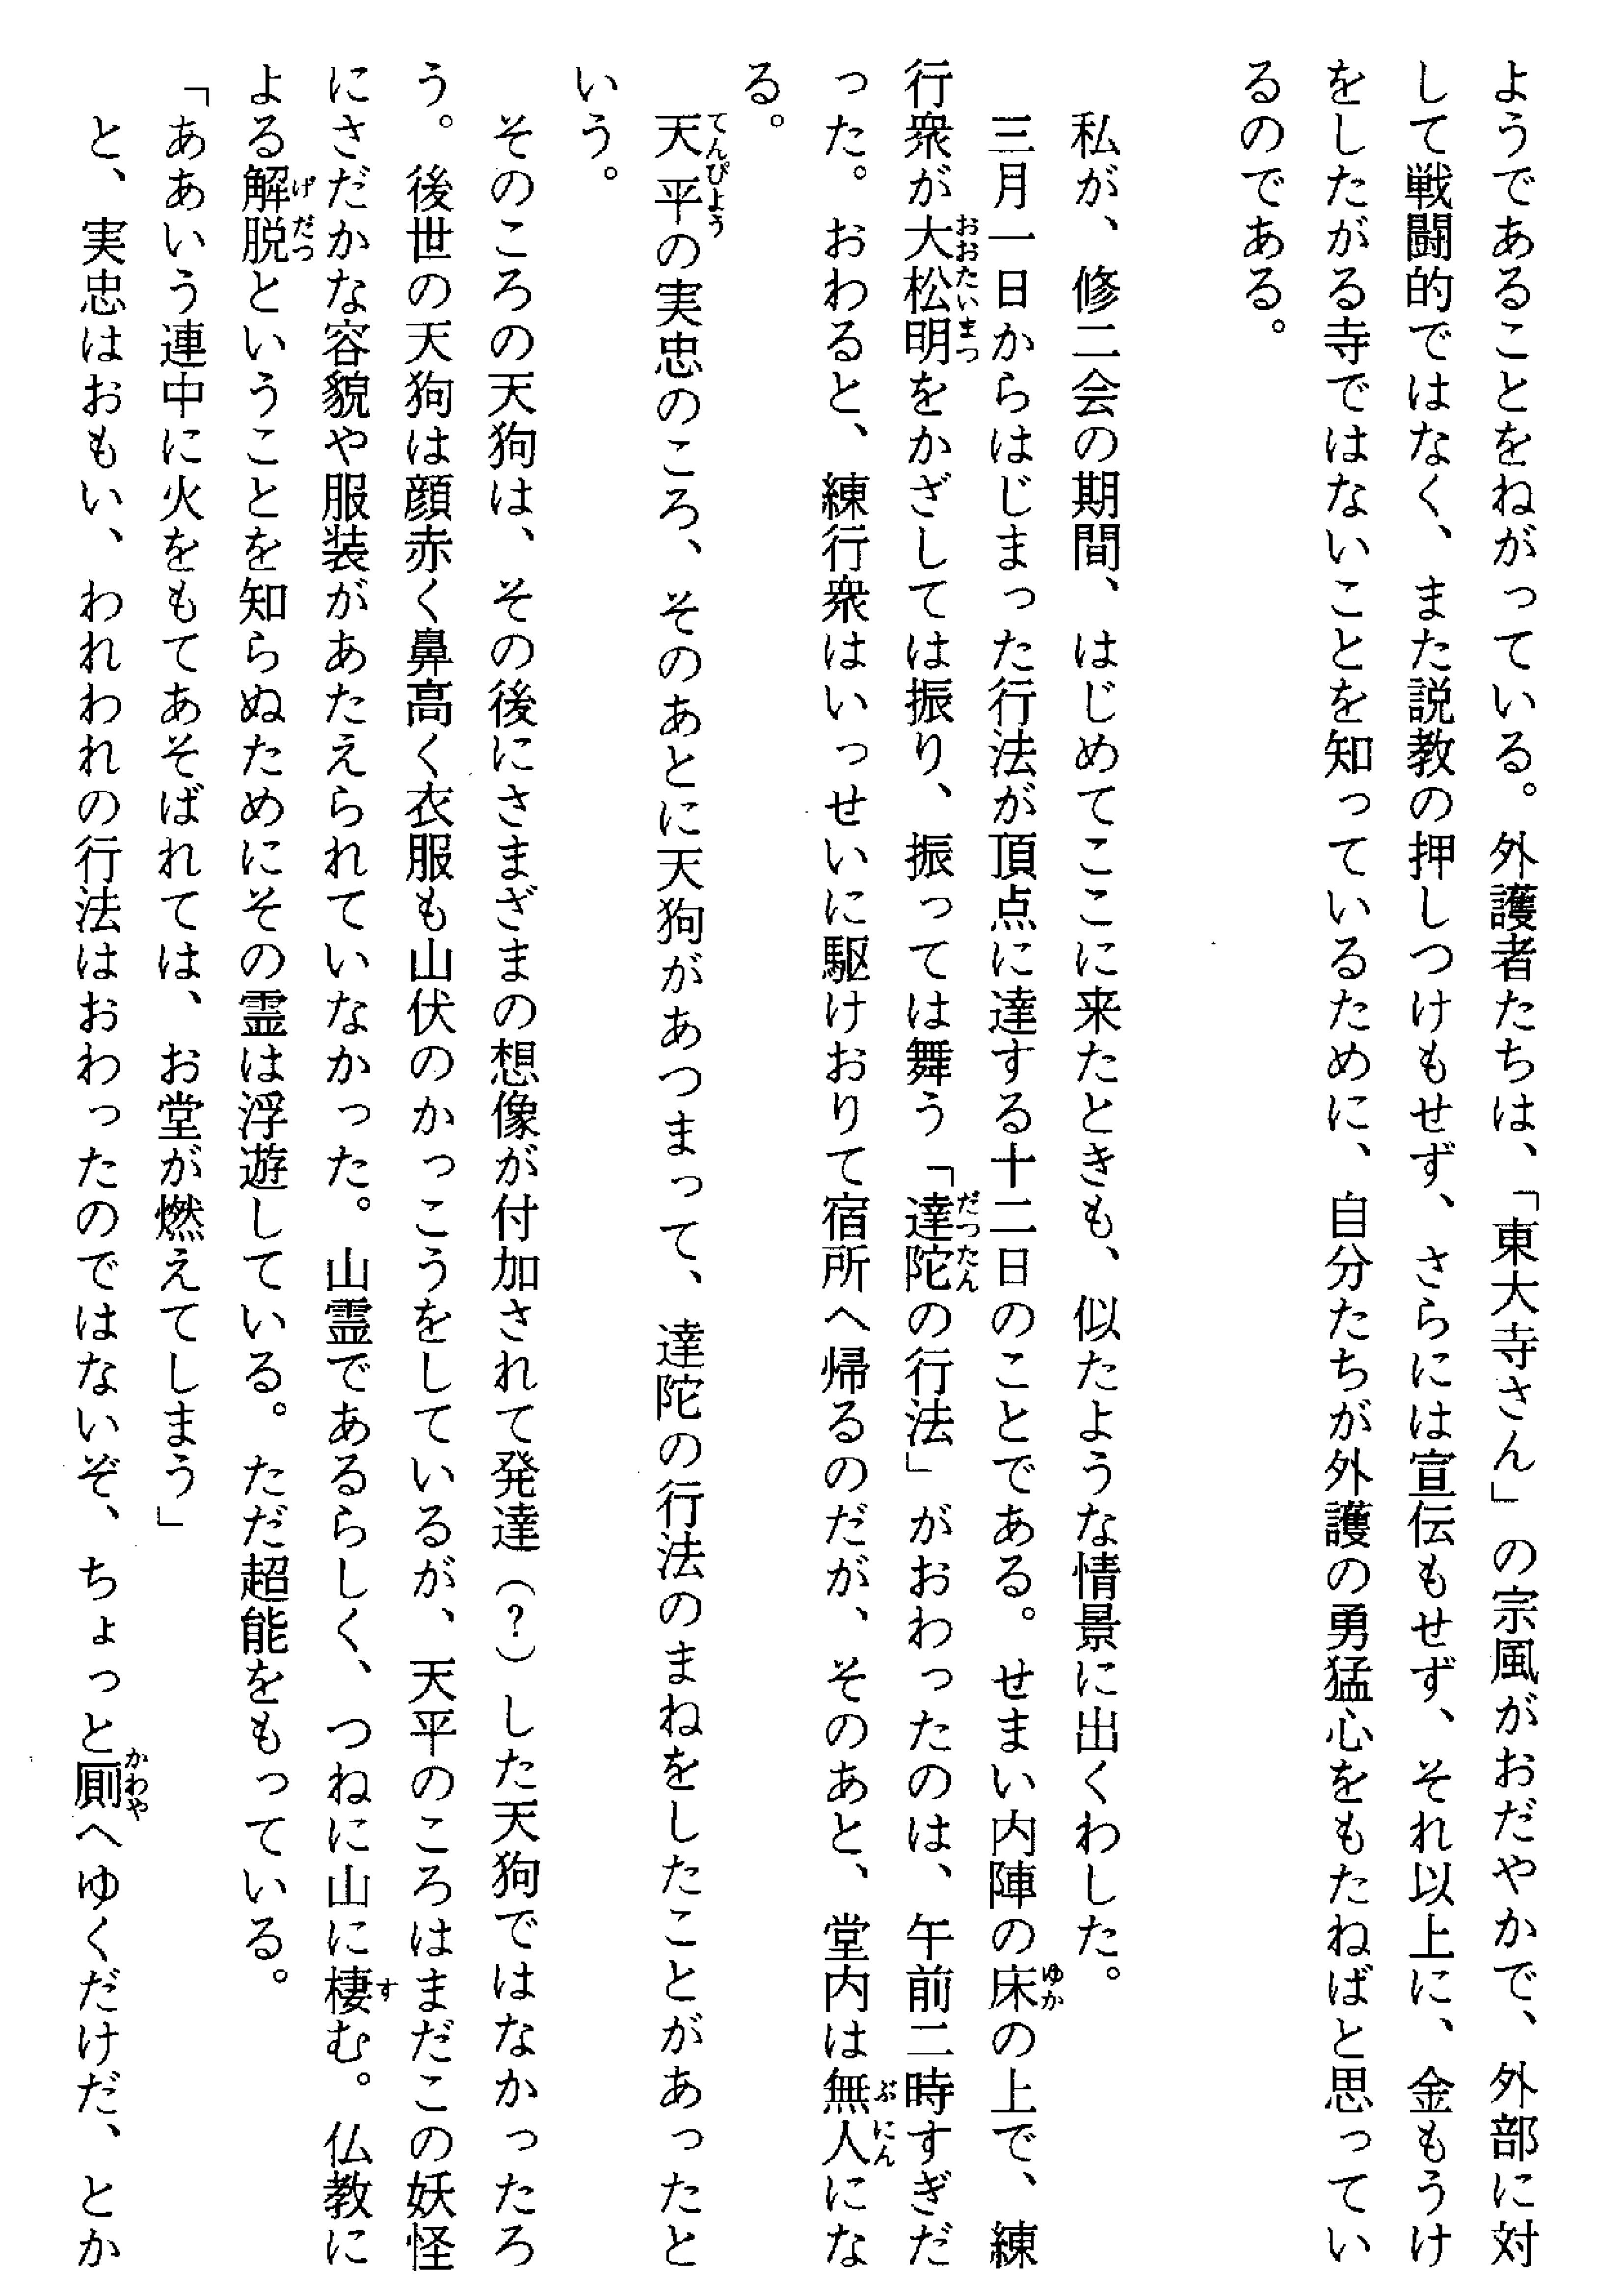 ようであることをねがっている。外護者たちは、「東大寺さん」の宗風がおだやかで、外部に対
して戦闘的ではなく、また説教の押しつけもせず、さらには宣伝もせず、それ以上に、金もうけ
をしたがる寺ではないことを知っているために、自分たちが外護の勇猛心をもたねばと思ってい
るのである。
私が、修二会の期間、はじめてここに来たときも、似たような情景に出くわした。
三月一日からはじまった行法が頂点に達する十二日のことである。せまい内陣の床の上で、練
行衆が大松明をかざしては振り、振っては舞う「達陀の行法」がおわったのは、午前二時すぎだ
った。おわると、練行衆はいっせいに駆けおりて宿所へ帰るのだが、そのあと、堂内は無人にな
る。
天平の実忠のころ、そのあとに天狗があつまって、達陀の行法のまねをしたことがあったと
いう。
そのころの天狗は、その後にさまざまの想像が付加されて発達（？）した天狗ではなかったろ
う。後世の天狗は顔赤く鼻高く衣服も山伏のかっこうをしているが、天平のころはまだこの妖怪
にさだかな容貌や服装があたえられていなかった。山霊であるらしく、つねに山に棲む。仏教に
よる解脱ということを知らぬためにその霊は浮遊している。ただ超能をもっている。
「ああいう連中に火をもてあそばれては、お堂が燃えてしまう」
と、実忠はおもい、われわれの行法はおわったのではないぞ、ちょっと厠へゆくだけだ、とか